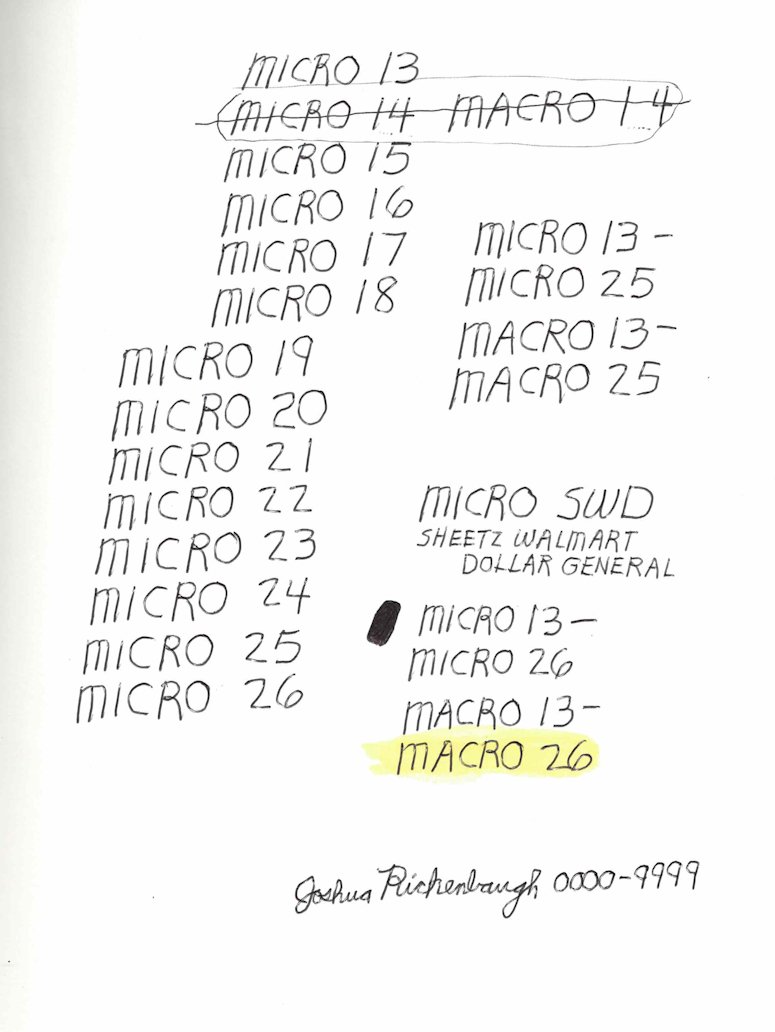 MICRO 13
MICRO 14 MACRO 14
MICRO 15
MICRO 16
MICRO 17
MICRO 18
MICRO 19
MICRO 20
MICRO 21
MICRO 22
MICRO 23
MICRO 24
MICRO 25
MICRO 26
MICRO 13 -
MICRO 25
MACRO 13 -
MACRO 25
MICRO SWD
SHEETZ WALMART
DOLLAR GENERAL
MICRO 13 -
MICRO 26
MACRO 13 -
MACRO 26
Joshua Richenbaugh 0000-9999